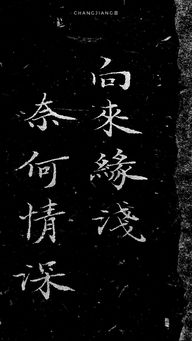 CHANGJIANG
向來緣淺
奈何情深